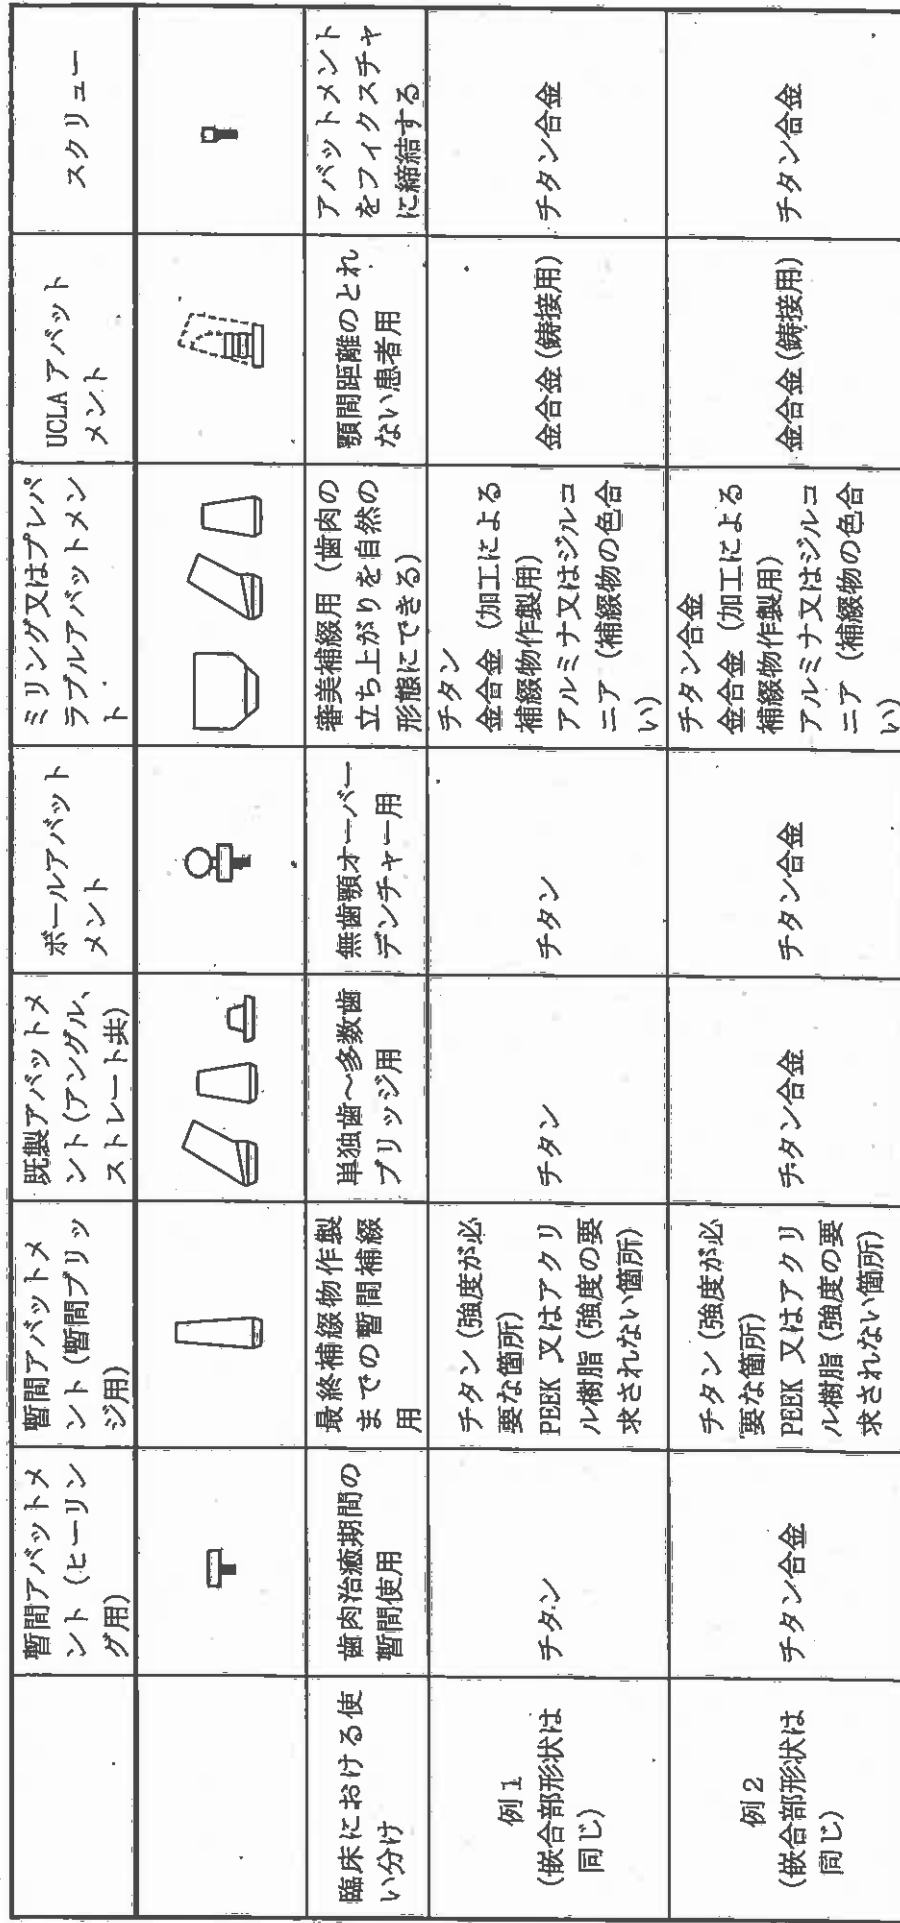 暫間アバットメ
ント（ヒーリン
グ用）
暫間アバットメ
ント（暫間ブリッ
ジ用）
既製アバットメ
ント（アングル、
ストレート共）
ボールアバット
メント
ミリング又はプレパ
ラブルアバットメン
ト
UCLA アバット
メント
スクリュー
臨床における使
い分け
歯肉治癒期間の
暫間使用
最終補綴物作製
までの暫間補綴
用
単独歯～多数歯
ブリッジ用
無歯顎オーバー
デンチャー用
審美補綴用（歯肉の
立ち上がりを自然の
形態にできる）
顎間距離のとれ
ない患者用
アバットメント
をフィクスチャ
に締結する
例１
（嵌合部形状は
同じ）
チタン
チタン（強度が必
要な箇所）
PEEK 又はアクリ
ル樹脂（強度の要
求されない箇所）
チタン
チタン
チタン
金合金（加工による
補綴物作製用）
アルミナ又はジルコ
ニア（補綴物の色合
い）
金合金（鋳接用）
チタン合金
例２
（嵌合部形状は
同じ）
チタン合金
チタン（強度が必
要な箇所）
PEEK 又はアクリ
ル樹脂（強度の要
求されない箇所）
チタン合金
チタン合金
チタン合金
金合金（加工による
補綴物作製用）
アルミナ又はジルコ
ニア（補綴物の色合
い）
金合金（鋳接用）
チタン合金